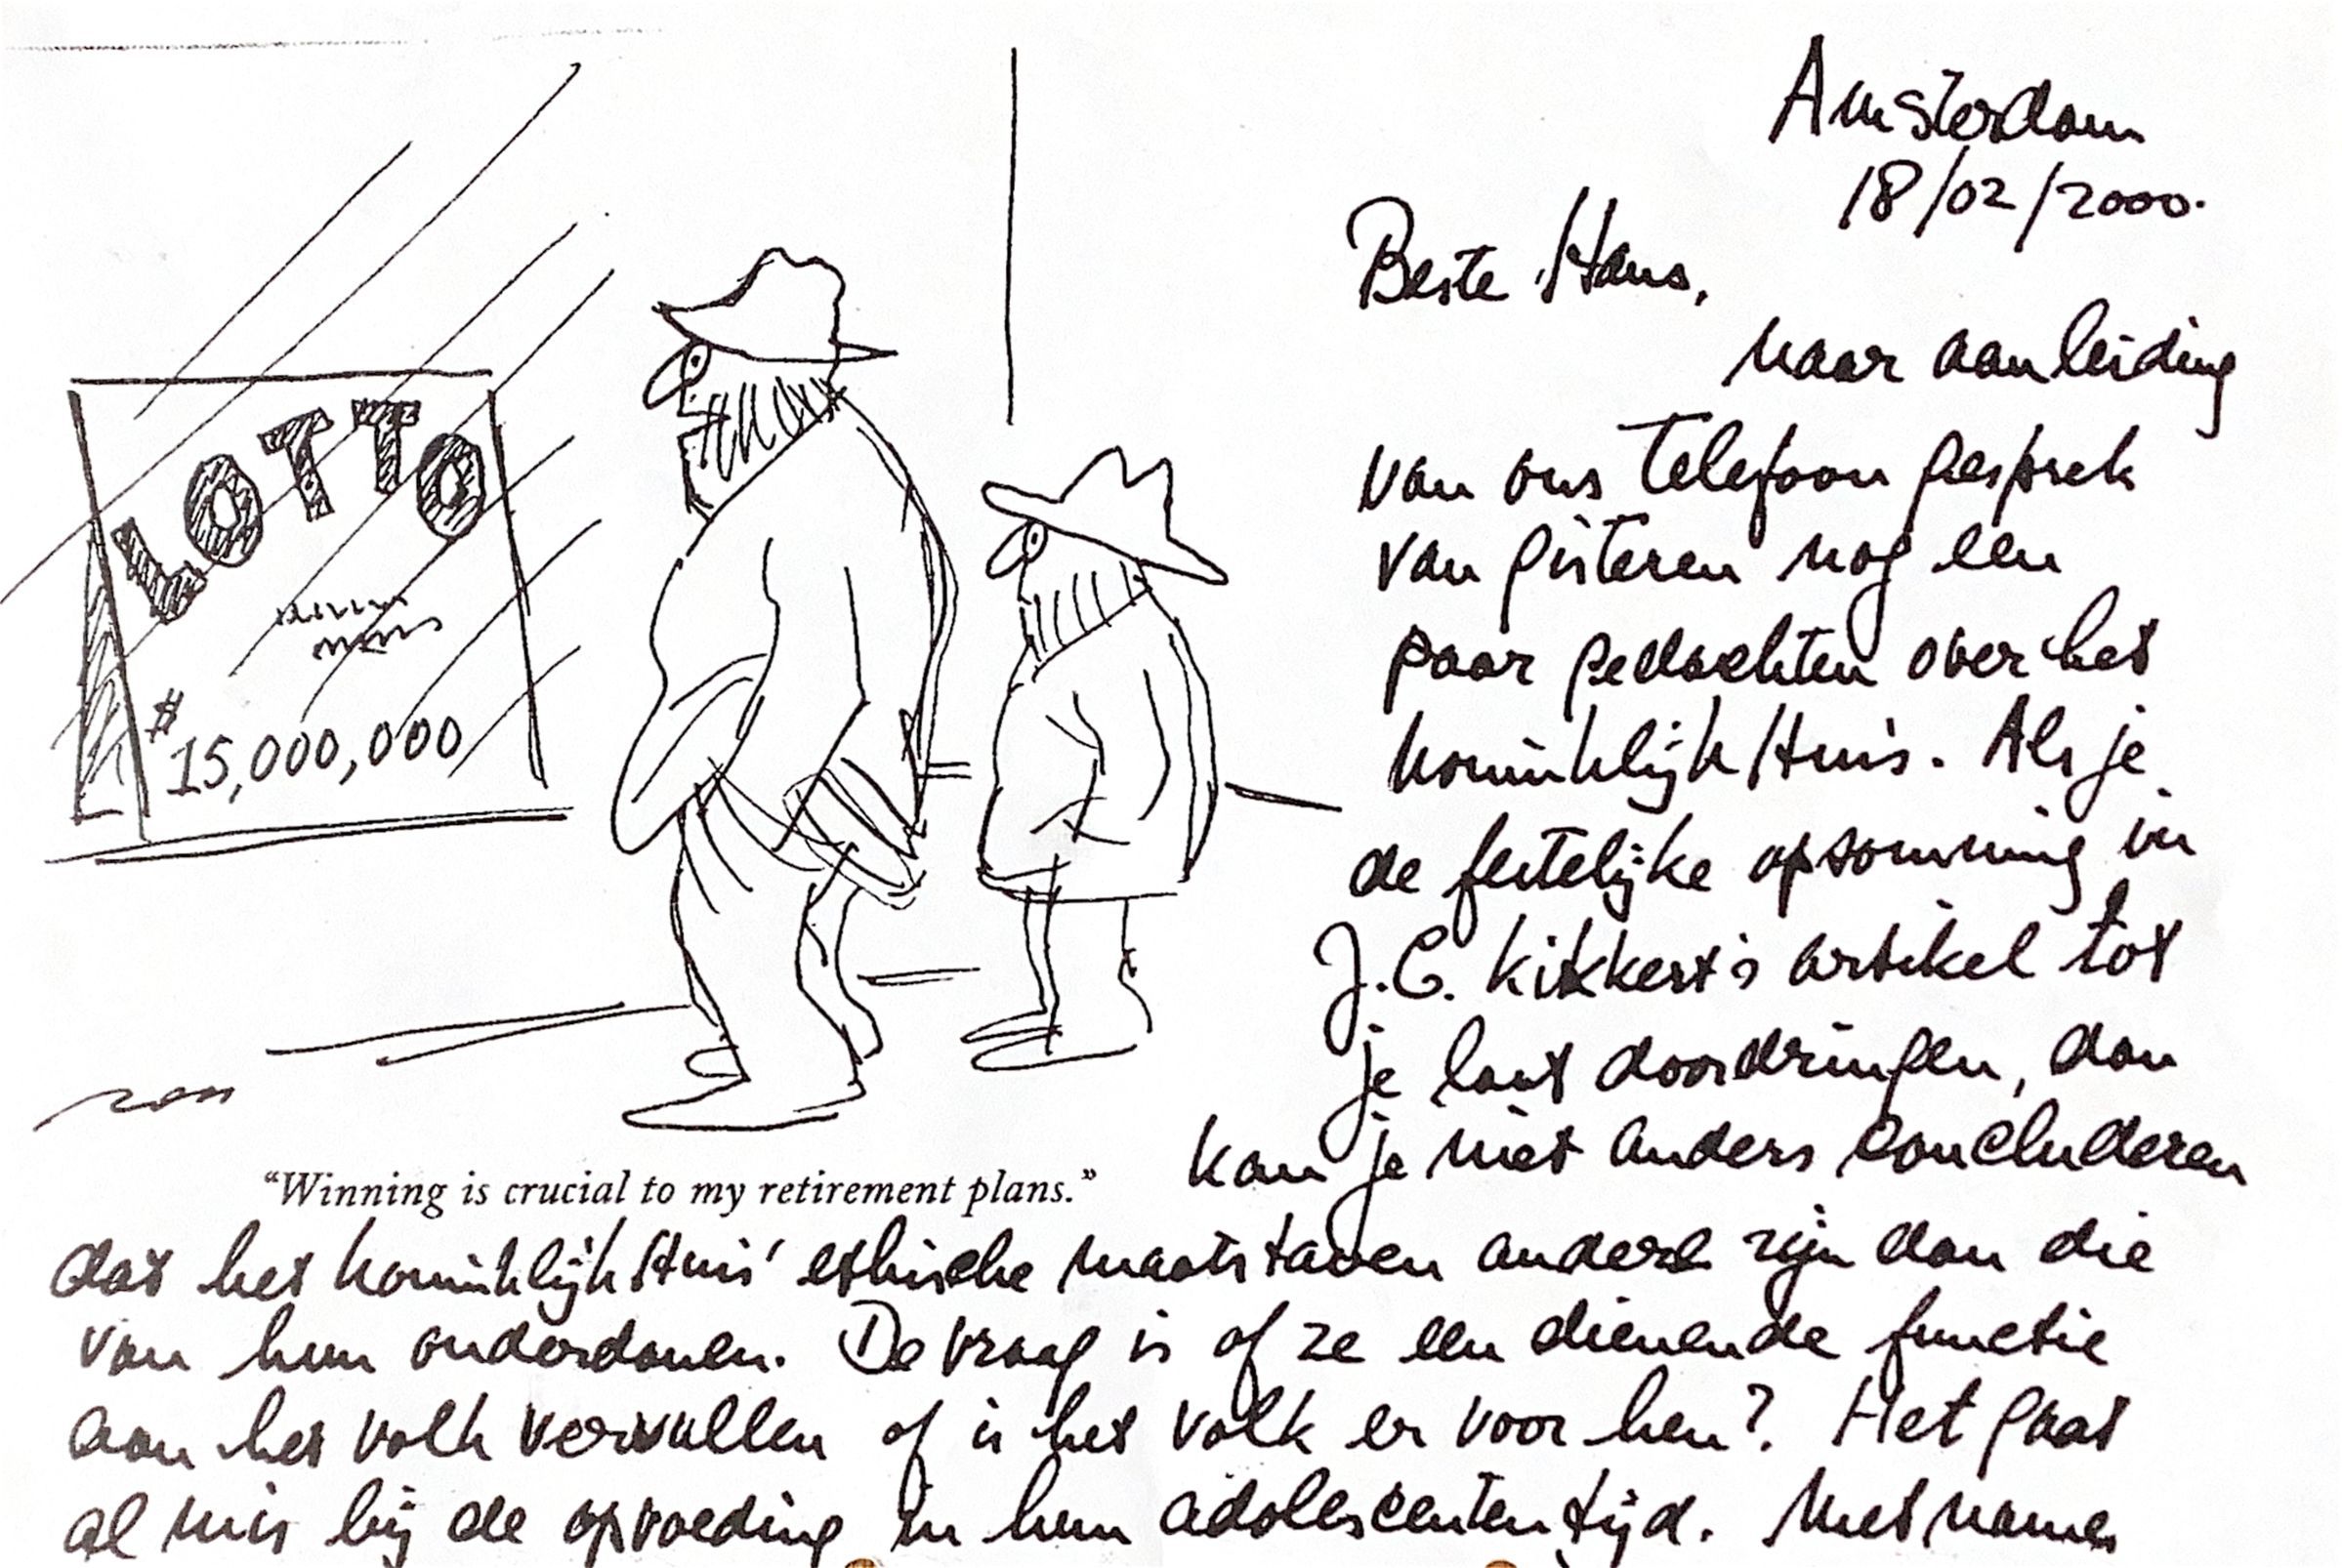 LOTTO
$15,000,000
"Winning is crucial to my retirement plans."
Amsterdam
18/02/2000.
Beste Hans,
naar aanleiding
van ons telefoon gesprek
van gisteren nog een
paar gedachten over het
koninklijk Huis. Als je
de feitelijke opsomming in
J.C. Kikkert's artikel tot
je laat doordringen, dan
kan je niet anders concluderen
dat het koninklijk Huis' ethische maatstaven anders zijn dan die
van hun onderdanen. De vraag is of ze een dienende functie
aan het volk vervullen of is het volk er voor hen? Het gaat
al mis bij de opvoeding in hun adolescenten tijd. Met name